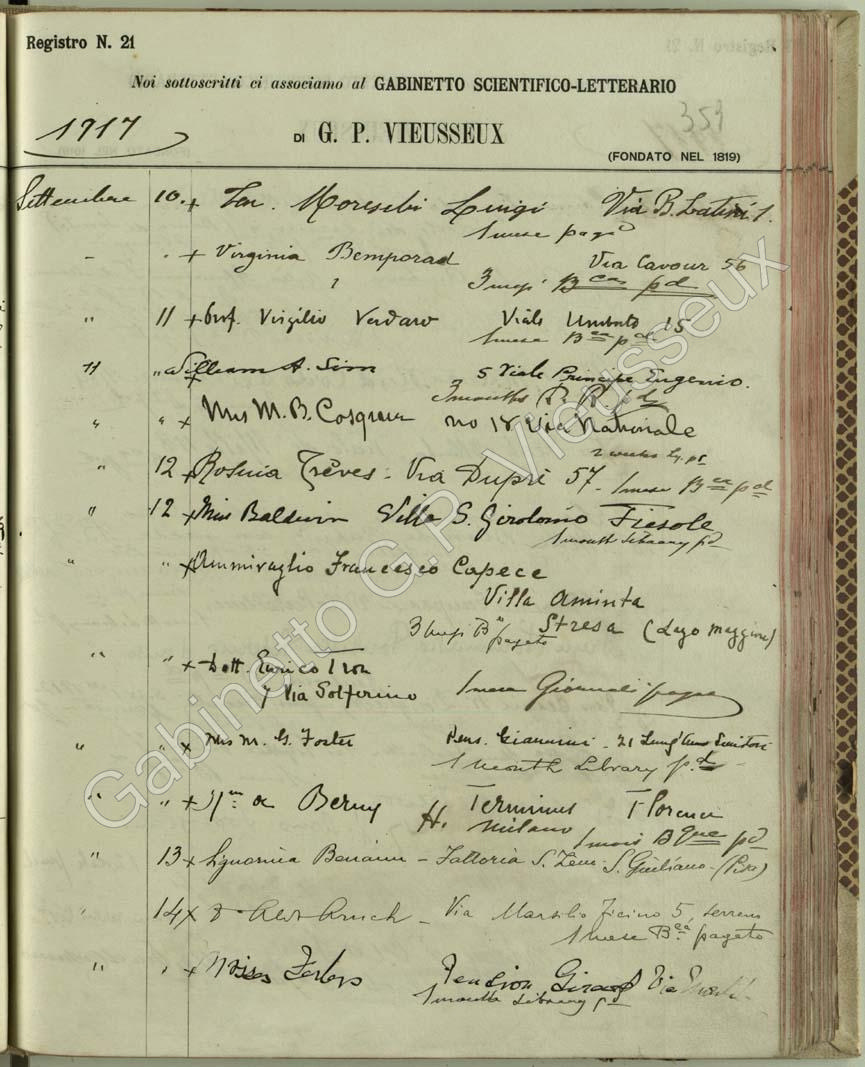 Registro N. 21
Noi sottoscritti ci associamo al GABINETTO SCIENTIFICO-LETTERARIO
353
1917
DI G. P. VIEUSSEUX
(FONDATO NEL 1819)
Settembre 10. + Moreschi Luigi Via B. Latini 1.
1 mese pag°
" " + Virginia Bemporad Via Cavour 56
3 mesi Bca pd
" 11 + Prof. Virgilio Verdaro Viale Umberto 15
1 mese Bca pd
11 " William A. Sim 5 Viale Principe Eugenio.
3 months R. R. pd
" " + Mrs M. B. Cosgrave no 18 Via Nationale
2 weeks
" 12 + Trêves - Via Dupré 57 - 1 mese Bca pd
" 12 + Miss Baldwin Villa S. Girolamo Fiesole
1 month Library pd
" " + Ammiraglio Francesco Capece
Villa Aminta
3 mesi Bca pagato Stresa (Lago Maggiore)
" " + Dott. Enrico Tron
7 Via Solferino 1 mese Giornali
" " x Mrs M. G. Foster Pens. Giannini - 21 Lung'
1 Month Library pd
" " + de Berny H. Terminus Florence
Milano 1 mois Bque pd
" 13 + - Fattoria S. S. Giuliano - (Pisa)
" 14 x - Via Marsilio Ficino 5, terreno
1 mese Bca pagato
" " + Forbes Pension Via
1 month Library pd
Gabinetto G.P. Vieusseux